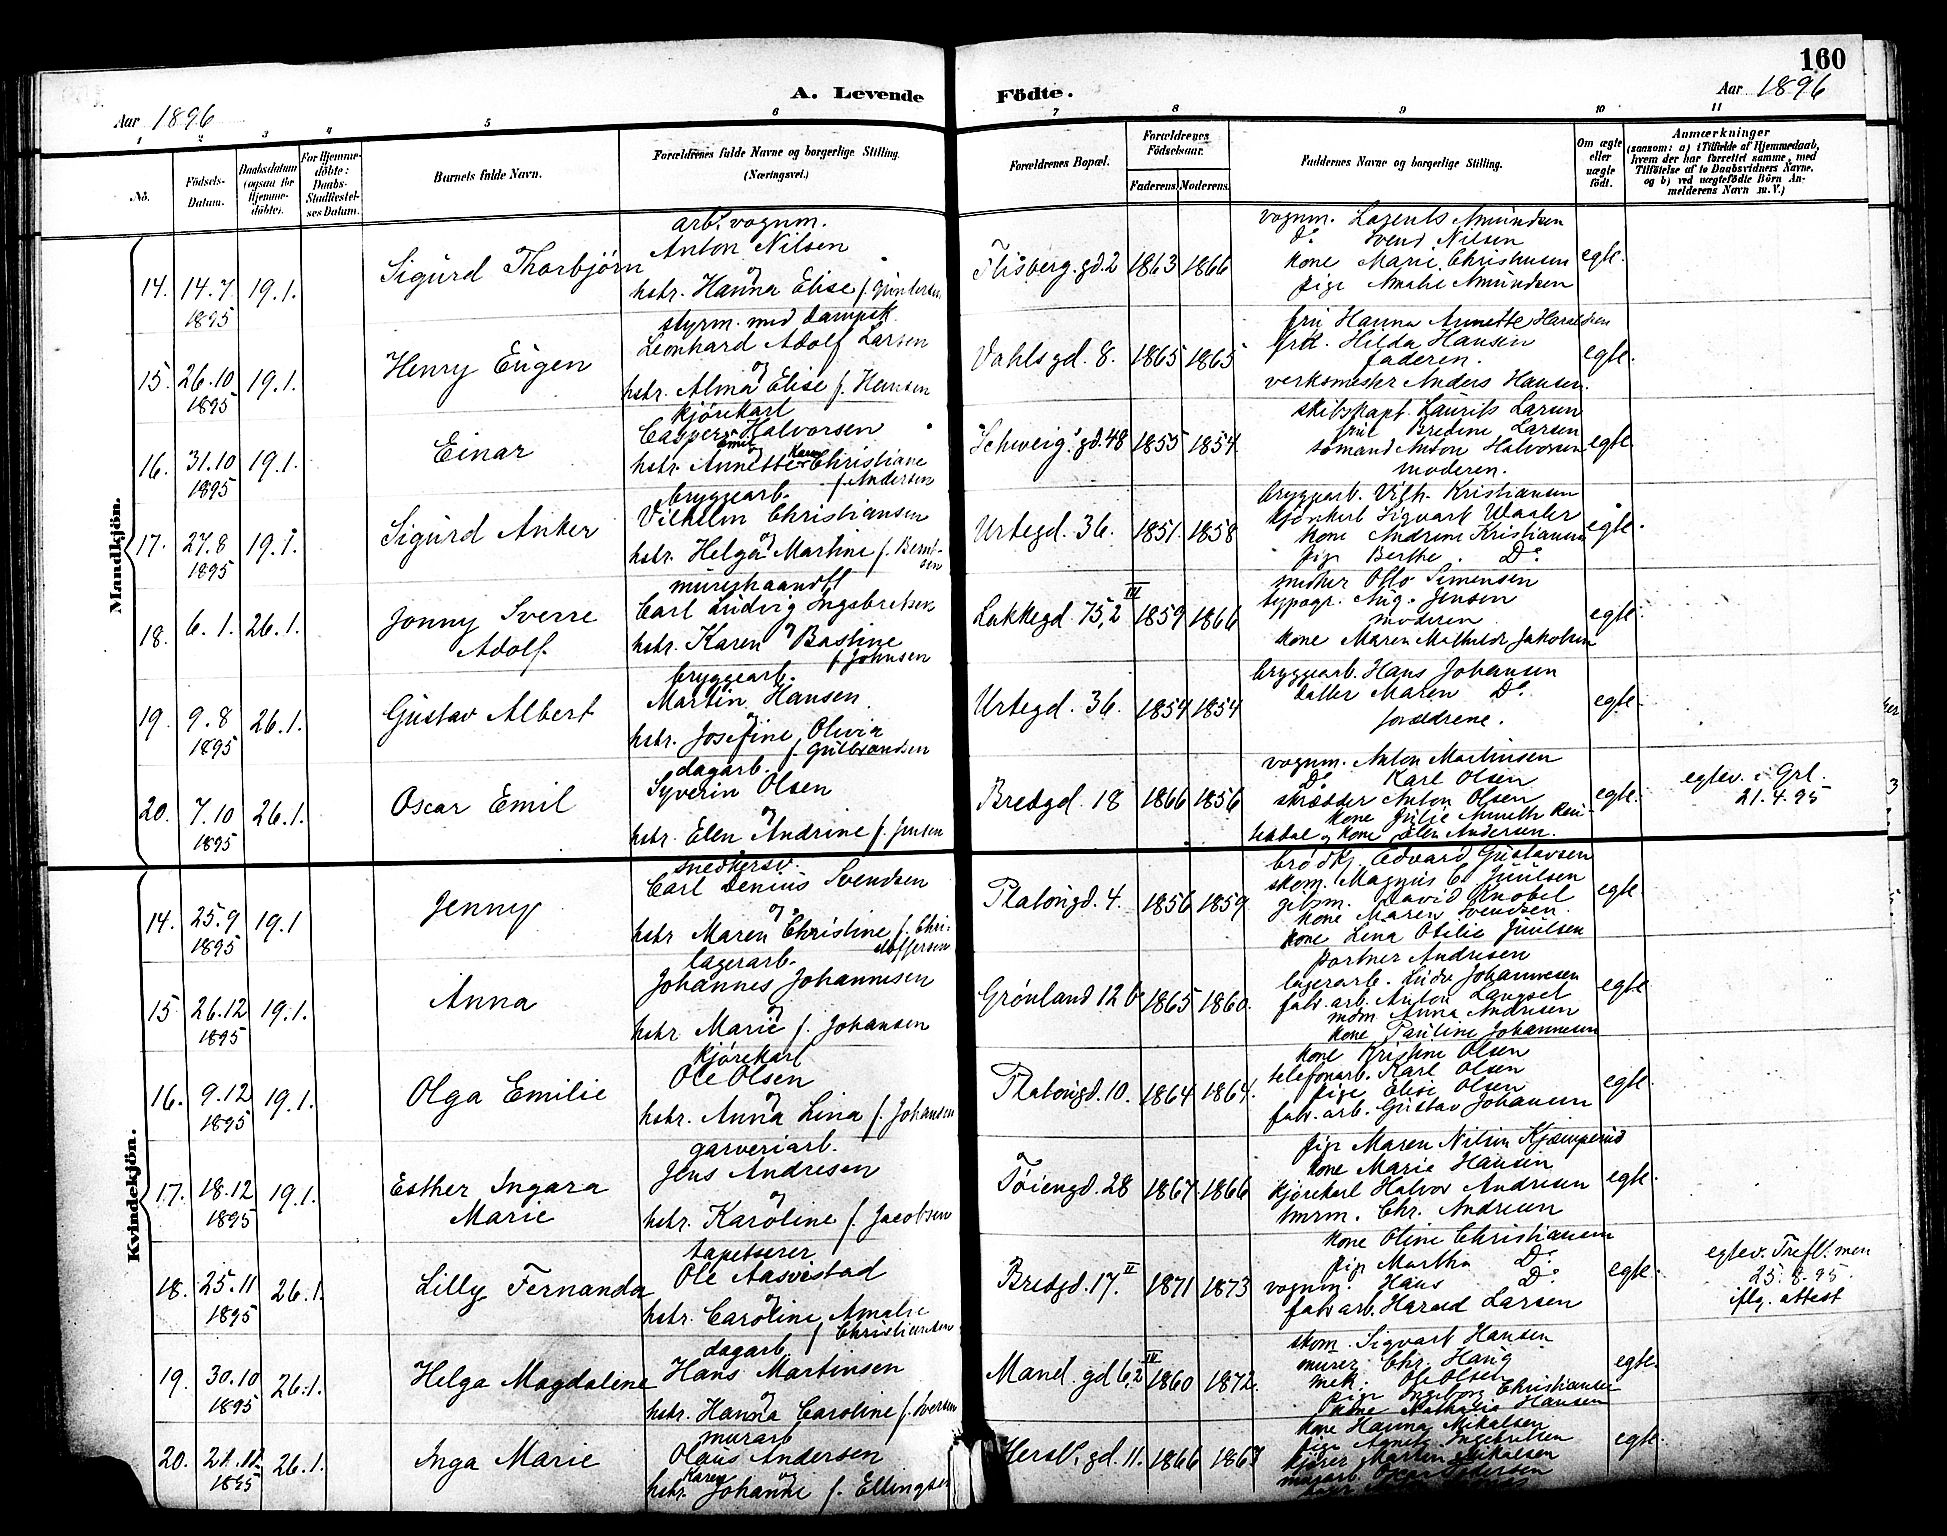 160
A. Levende Födte.
Aar 1896
Aar 1896
1 2 3 4 5 6 7 8 9 10 11
No.
Födsels-Datum.
Daabsdatum (ogsaa for Hjemme-döbte).
For Hjemme-döbte: Daabs-Stadfæstel-ses Datum.
Barnets fulde Navn.
Forældrenes fulde Navne og borgerlige Stilling. (Næringsvei.)
Forældrenes Bopæl.
Forældrenes Födselsaar.
Faderens. Moderens.
Faddernes Navne og borgerlige Stilling.
Om ægte eller uægte födt.
Anmærkninger
(saasom: a) i Tilfælde af Hjemmedaab, hvem der har forrettet samme, med Tilföielse af to Daabsvidners Navne, og b) ved uægtefödte Börn An-melderens Navn m. V.)
Mandkjön.
14. 14.7 1895 19.1. Sigurd Thorbjørn
arb. vognm.
Anton Nilsen
og
hstr. Hanna Elise f.
Flisberg.gd.2 1863 1866
vognm. Larents Amundsen
Do Svend Nilsen
kone Marie Christiansen
pige Amalie Amundsen
egte.
15. 26.10 1895 19.1. Henry Eugen
styrm. med dampsk.
Leonhard Adolf Larsen
og
hstr. Alma Elise f. Hansen
Vahlsgd. 8. 1865 1865
fru Hanna Annette Haraldsen
frk. Hilda Hansen
faderen.
verksmester Anders Hansen.
egte.
16. 31.10 1895 19.1. Einar
kjørekarl
Casper Emil Halvorsen
og
hstr. Annette Karen Christiane
f. Andersen
Schweig.gd.48 1855 1854
skibskapt. Laurits Larsen
frue Bredine Larsen
sømand Anton Halvorsen
moderen.
egte
17. 27.8 1895 19.1. Sigurd Anker
bryggearb.
Vilhelm Christiansen
og
hstr. Helga Martine f. Bernt-
sen
Urtegd. 36. 1851. 1858
bryggearb. Vilh. Kristiansen
kjørekarl Sigvart Waaler
kone Andrine Kristiansen
pige Berthe Do
egte.
18. 6.1. 26.1. Jonny Sverre
Adolf
Carl Ludvig Ingebretsen
og
hstr. Karen Bastine
f. Johnsen
Lakkegd. 75,2 III 1859 1866
mester Otto Simensen
typogr. Aug. Jensen
moderen.
kone Maren Mathilde Jakobsen
egte.
19. 9.8 1895 26.1. Gustav Albert
bryggearb.
Martin Hansen.
og
hstr. Josefine Olivia
f. Gulbrandsen
Urtegd. 36. 1854 1854
bryggearb. Hans Johansen
datter Maren Do
forældrene.
egte.
20. 7.10 1895 26.1. Oscar Emil
dagarb.
Syverin Olsen
og
hstr. Elen Andrine f. Jensen
Bredgd. 18 1866 1856
vognm. Anton Martinsen
Do Karl Olsen
skrædder Anton Olsen
kone Julie Annette
og kone Elen Andersen.
egte.
egtev. i Grl.
21.4.95
Kvindekjön.
14. 25.9 1895 19.1 Jenny
snedkersv.
Carl Denius Svendsen
og
hstr Maren Christine f. Chri-
stoffersen
Platougd. 4. 1856 1859
brødkj. Edvard Gustavsen
skom. Magnus C. Juulsen
gibsm. David Knobel
kone Maren Svendsen.
kone Lina Otilie Juulsen
egte
15 26.12 1895 19.1. Anna
lagerarb.
Johannes Johannesen
og
hstr. Marie f. Johansen
Grønland 12 b 1865 1860.
portner Andresen
lagerarb. Ludv Johannesen
fabr.arb. Anton Langset
mdm Anna Andresen
kone Pauline Johannesen
egte
16. 9.12 1895 19.1. Olga Emilie
kjørekarl
Ole Olsen
og
hstr. Anna Lina f. Johansen
Platougd. 10. 1864 1864.
kone Kristine Olsen
telefonarb. Karl Olsen
pige Elise Olsen
fabr.arb. Gustav Johansen
egte.
17. 18.12 1895 19.1. Esther Ingara
Marie
garveriarb.
Jens Andresen
og
hstr. Karoline f. Jacobsen
Tøiengd. 28 1867 1866
pige Maren Nilsen Kjæmperud
kone Marie Hansen
kjørekarl Halvor Andresen
tmrm. Chr. Andresen
egte.
18. 25.11 1895 26.1. Lilly Fernanda
tapetserer
Ole Aasvestad
og
hstr. Caroline Amalie
f Christiansen
Bredgd. 17. II 1871 1873
kone Oline Christiansen
pige Martha Do
vognm. Hans Do
fabr arb. Harald Larsen
egte.
egtev. Trefl. men
25.8.95.
iflg. attest
19. 30.10 1895 26.1. Helga Magdalene
dagarb.
Hans Martinsen
og
hstr. Hanna Caroline f. Iversen
Mand.gd 6,2 IV 1860 1872.
skom. Sigvart Hansen
murer Chr. Haug
mek. Ole Olsen
pige Ingeborg Christiansen
kone Nathalia Hansen
egte.
20. 21.12 1895 26.1. Inga Marie
murarb
Olaus Andersen
og
hstr. Karen Johanne f. Ellingsen
Hersl.gd. 11. 1866 1867
kone Hanna Mikalsen
pige Agnete Ingebretsen
kjører Martin Mikalsen
egte.